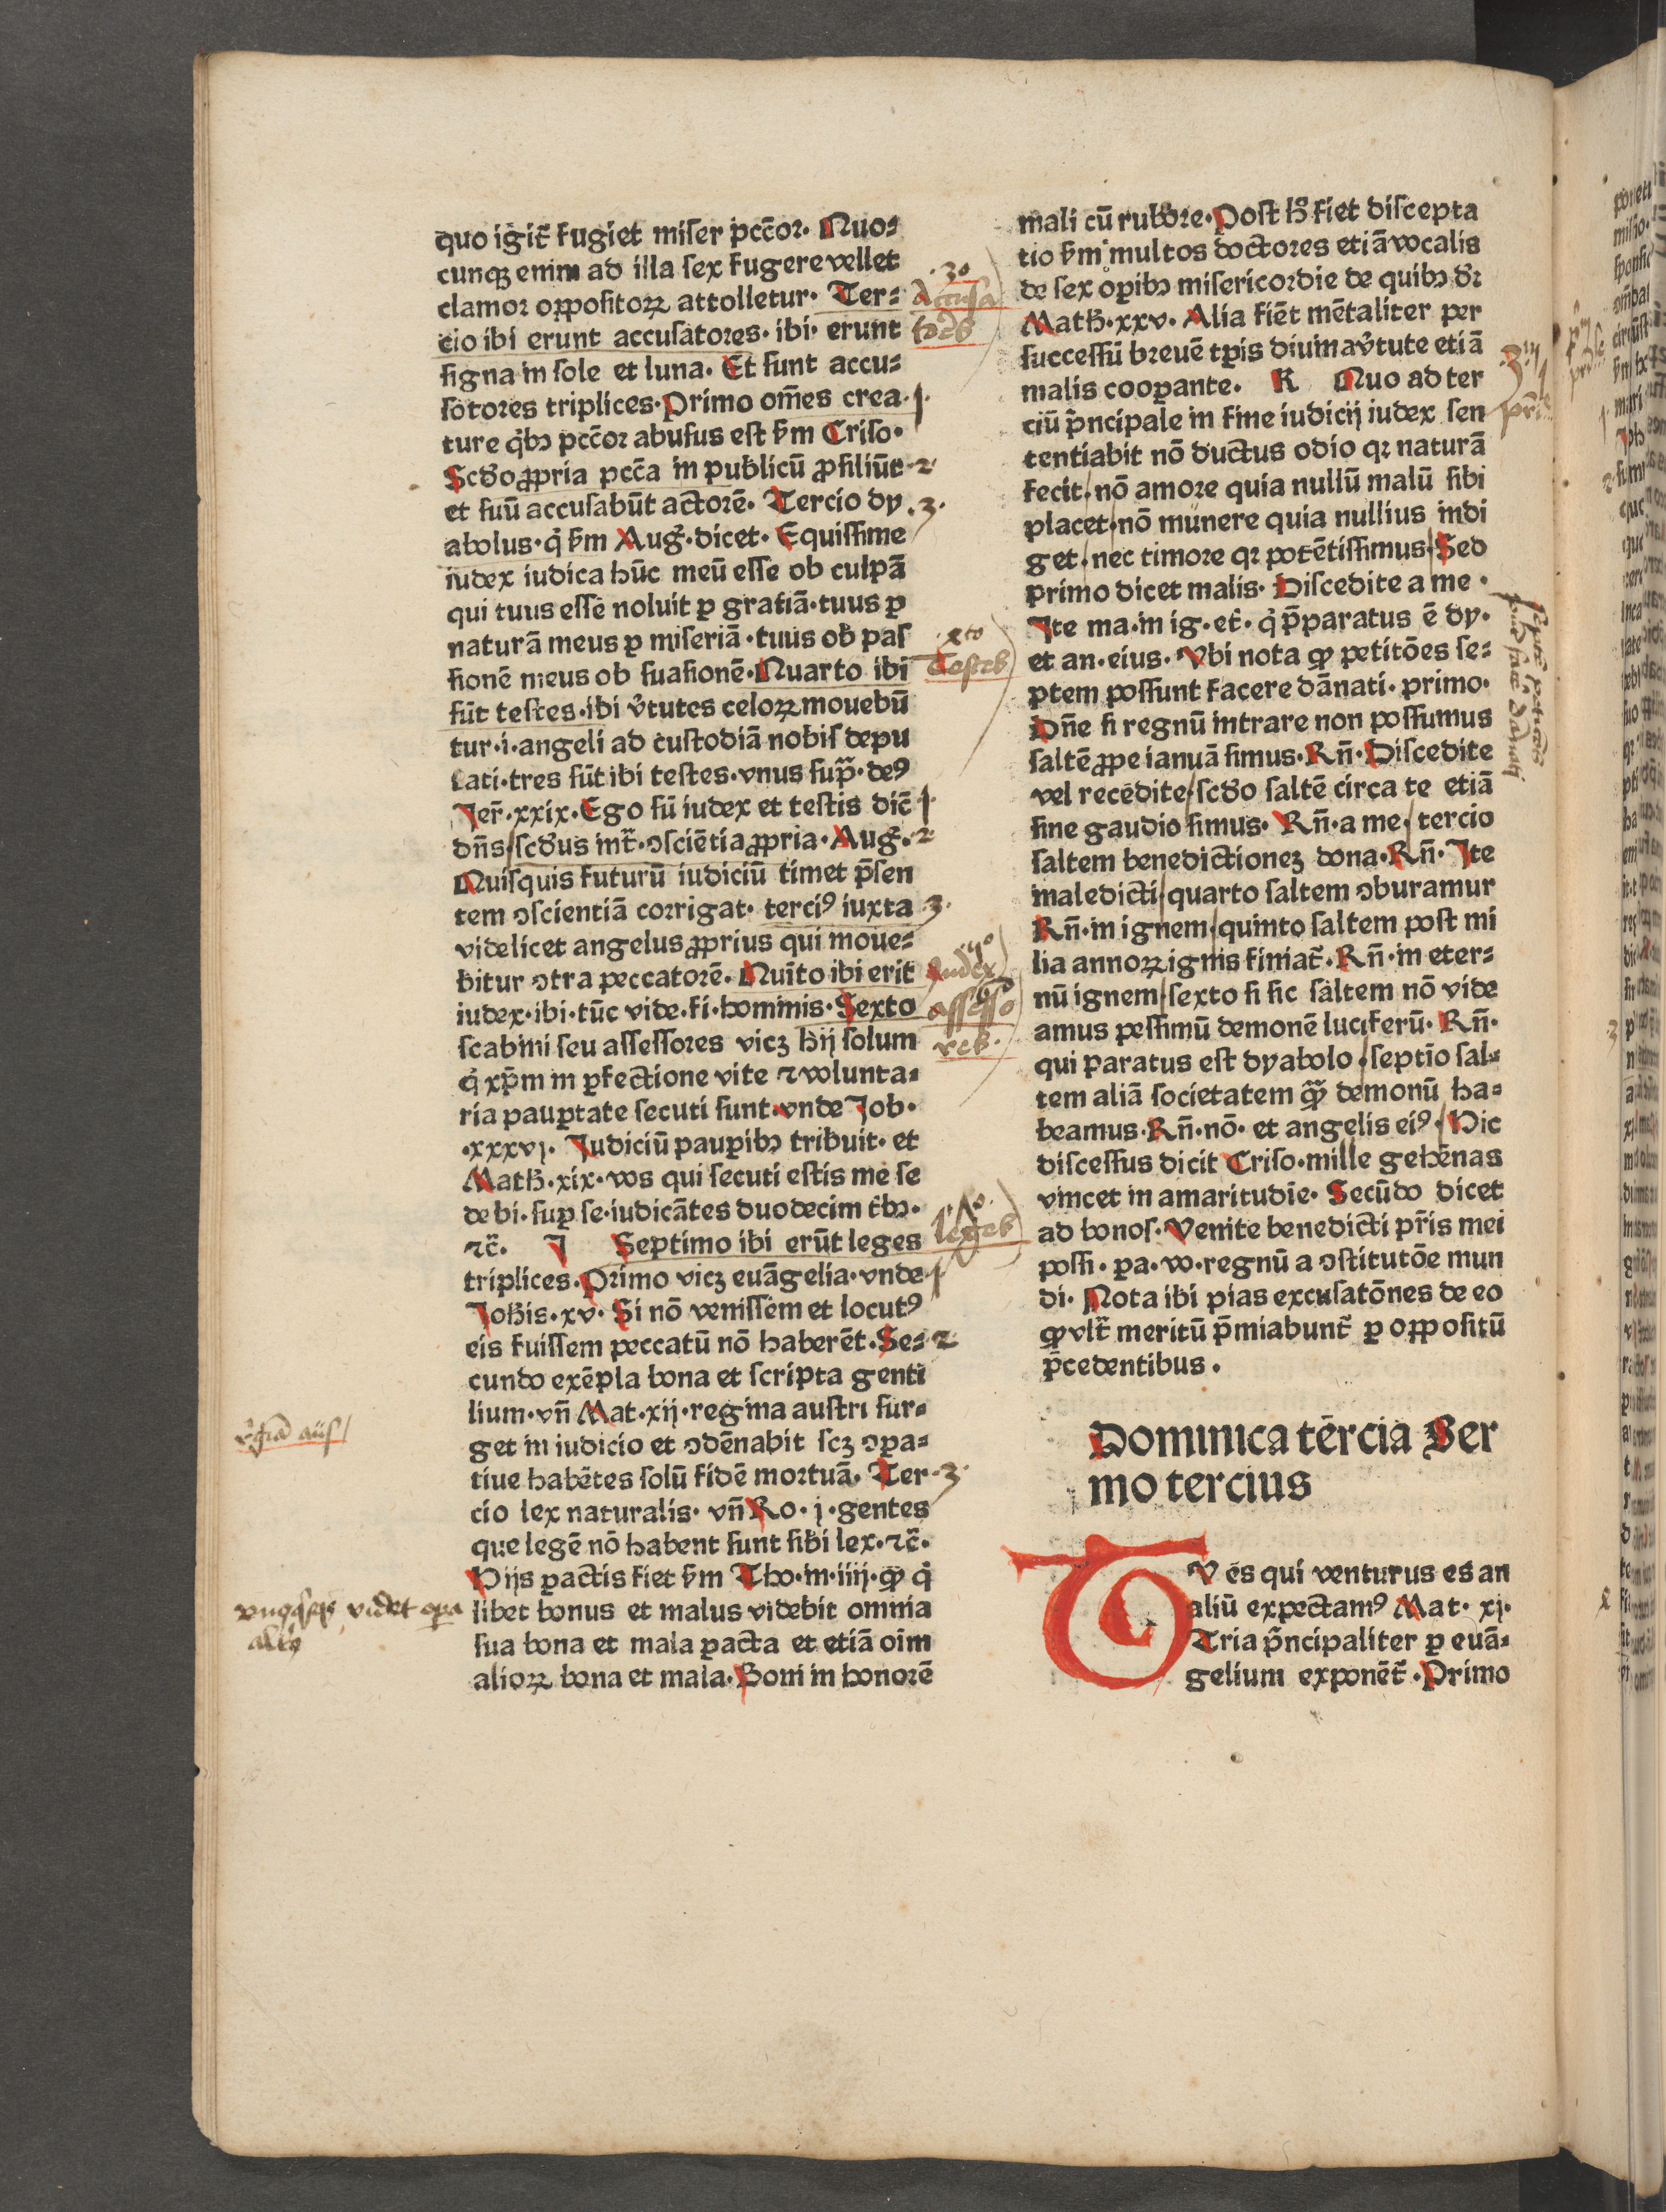 quo igit̃ fugiet miser pcc̃or. Quo⸗
cunqꝫ enim ad illa sex fugere vellet
clamor oꝑpositoꝝ attolletur. Ter⸗
cio ibi erunt accusatores. ibi. erunt
signa in sole et luna. Et sunt accu⸗
sotores triplices. Primo om̃es crea
ture q̇bꝫ pcc̃or abusus est ẜm Criso.
Scd̃o ꝓpria pcc̃a in publicũ ꝓsiliũt
et suũ accusabũt actorẽ. Tercio dy
abolus. q̇ ẜm Aug̃. dicet. Equissime
iudex iudica hũc meũ esse ob culpã
qui tuus esse noluit ꝑ gratiã. tuus ꝑ
naturã meus ꝑ miseriã. tuus ob pas
sionẽ meus ob suasionẽ. Quarto ibi
sũt testes. ibi v̓tutes celoꝝ mouebũ
tur. i. angeli ad custodiã nobis depu
tati. tres sũt ibi testes. vnus supᷓ. deꝰ
Jer̃. xxix. Ego sũ iudex et testis dic̃
dñs scd̃us int̃. ꝯsciẽtia ꝓpria. Aug̃.
Quisquis futurũ iudiciũ timet p̃sen
tem ꝯscientiã corrigat. terciꝰ iuxta
videlicet angelus ꝓprius qui moue⸗
bitur ꝯtra peccatorẽ. Quĩto ibi erit
iudex. ibi. tũc vide. fi. hominis. Sexto
scabini seu assessores vicꝫ hij solum
q̇ xp̃m in ꝑfectione vite ⁊ volunta⸗
ria pauꝑtate secuti sunt. vnde Job.
.xxxvj. Judiciũ pauꝑibꝫ tribuit. et
Math̃. xix. vos qui secuti estis me se
de bi. suꝑ se. iudicãtes duodecim t̓bꝫ.
⁊c̃. J Septimo ibi erũt leges
triplices. Primo vicꝫ euãgelia. vnde
Joh̃is. xv. Si nõ venissem et locutꝰ
eis fuissem peccatũ nõ haberẽt. Se⸗
cundo exẽpla bona et scripta genti
lium. vñ Mat. xij. regina austri sur⸗
get in iudicio et ꝯdẽnabit scꝫ ꝯꝑa⸗
tiue habẽtes solũ fidẽ mortuã. Ter
cio lex naturalis. vñ Ro. j. gentes
que legẽ nõ habent sunt sibi lex. ⁊c̃.
Hijs ꝑactis fiet ẜm Tho. in. iiij. ꝙ q̇
libet bonus et malus videbit omnia
sua bona et mala ꝑacta et etiã oim
alioꝝ bona et mala. Boni in honorẽ
mali cũ rubore. Post h̃ fiet discepta
tio ẜm multos doctores etiã vocalis
de sex oꝑibꝫ misericordie de quibꝫ d̓r
Math̃. xxv. Alia fiẽt mẽtaliter per
successũ breuẽ tp̃is diuina v̓tute etiã
malis cooꝑante. K Quo ad ter
ciũ p̃ncipale in fine iudicij iudex sen
tentiabit nõ ductus odio qꝛ naturã
fecit. nõ amore quia nullũ malũ sibi
placet. nõ munere quia nullius indi
get. nec timore qꝛ potẽtissimus. Sed
primo dicet malis. Discedite a me.
Ite ma. in ig. et̓. q̇ p̃paratus ẽ dy.
et an. eius. Vbi nota ꝙ petitões se⸗
ptem possunt facere dãnati. primo.
Dñe si regnũ intrare non possumus
saltẽ ꝓpe ianuã simus. Rñ. Discedite
vel recẽdite scd̃o saltẽ circa te etiã
sine gaudio simus. Rñ. a me. tercio
saltem benedictionẽꝫ dona. Rñ. Ite
maledicti. quarto saltem ꝯburamur
Rñ. in ignem quinto saltem post mi
lia annoꝝ ignis finiat̃. Rñ. in eter⸗
nũ ignem sexto si sic saltem nõ vide
amus pessimũ demonẽ luciferũ. Rñ.
qui paratus est dyabolo. septĩo sal⸗
tem aliã societatem qᷓꝫ demonũ ha⸗
beamus. Rñ. nõ. et angelis eiꝰ. Hic
discessus dicit Criso. mille gehẽnas
vincet in amaritudĩe. Secũdo dicet
ad bonos. Venite benedicti pr̃is mei
possi. ꝑa. vo. regnũ a ꝯstitutõe mun
di. Nota ibi pias excusatõnes de eo
ꝙ vlt̃ meritũ p̃miabunt̃ ꝑ oꝑpositũ
p̃cedentibus.
Dominica tẽrcia Ser
mo tercius
TV es qui venturus es an
aliũ expectamꝰ Mat. xj.
Tria p̃ncipaliter ꝑ euã⸗
gelium exponẽt̃. Primo